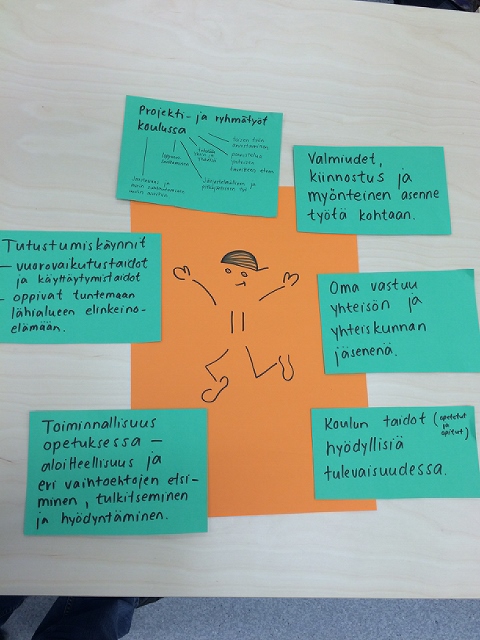 Projekti- ja ryhmätyöt
koulussa
Valmiudet,
kiinnostus ja
myönteinen asenne
työtä kohtaan.
Tutustumiskäynnit
– vuorovaikutustaidot
ja käyttäytymistaidot
– oppivat tuntemaan
lähialueen elinkeino-
elämään.
Oma vastuu
yhteisön ja
yhteiskunnan
jäsenenä.
Toiminnallisuus
opetuksessa –
aloitteellisuus ja
eri vaihtoehtojen etsi-
minen, tulkitseminen
ja hyödyntäminen.
Koulun taidot (opetetut
ja
opitut)
hyödyllisiä
tulevaisuudessa.